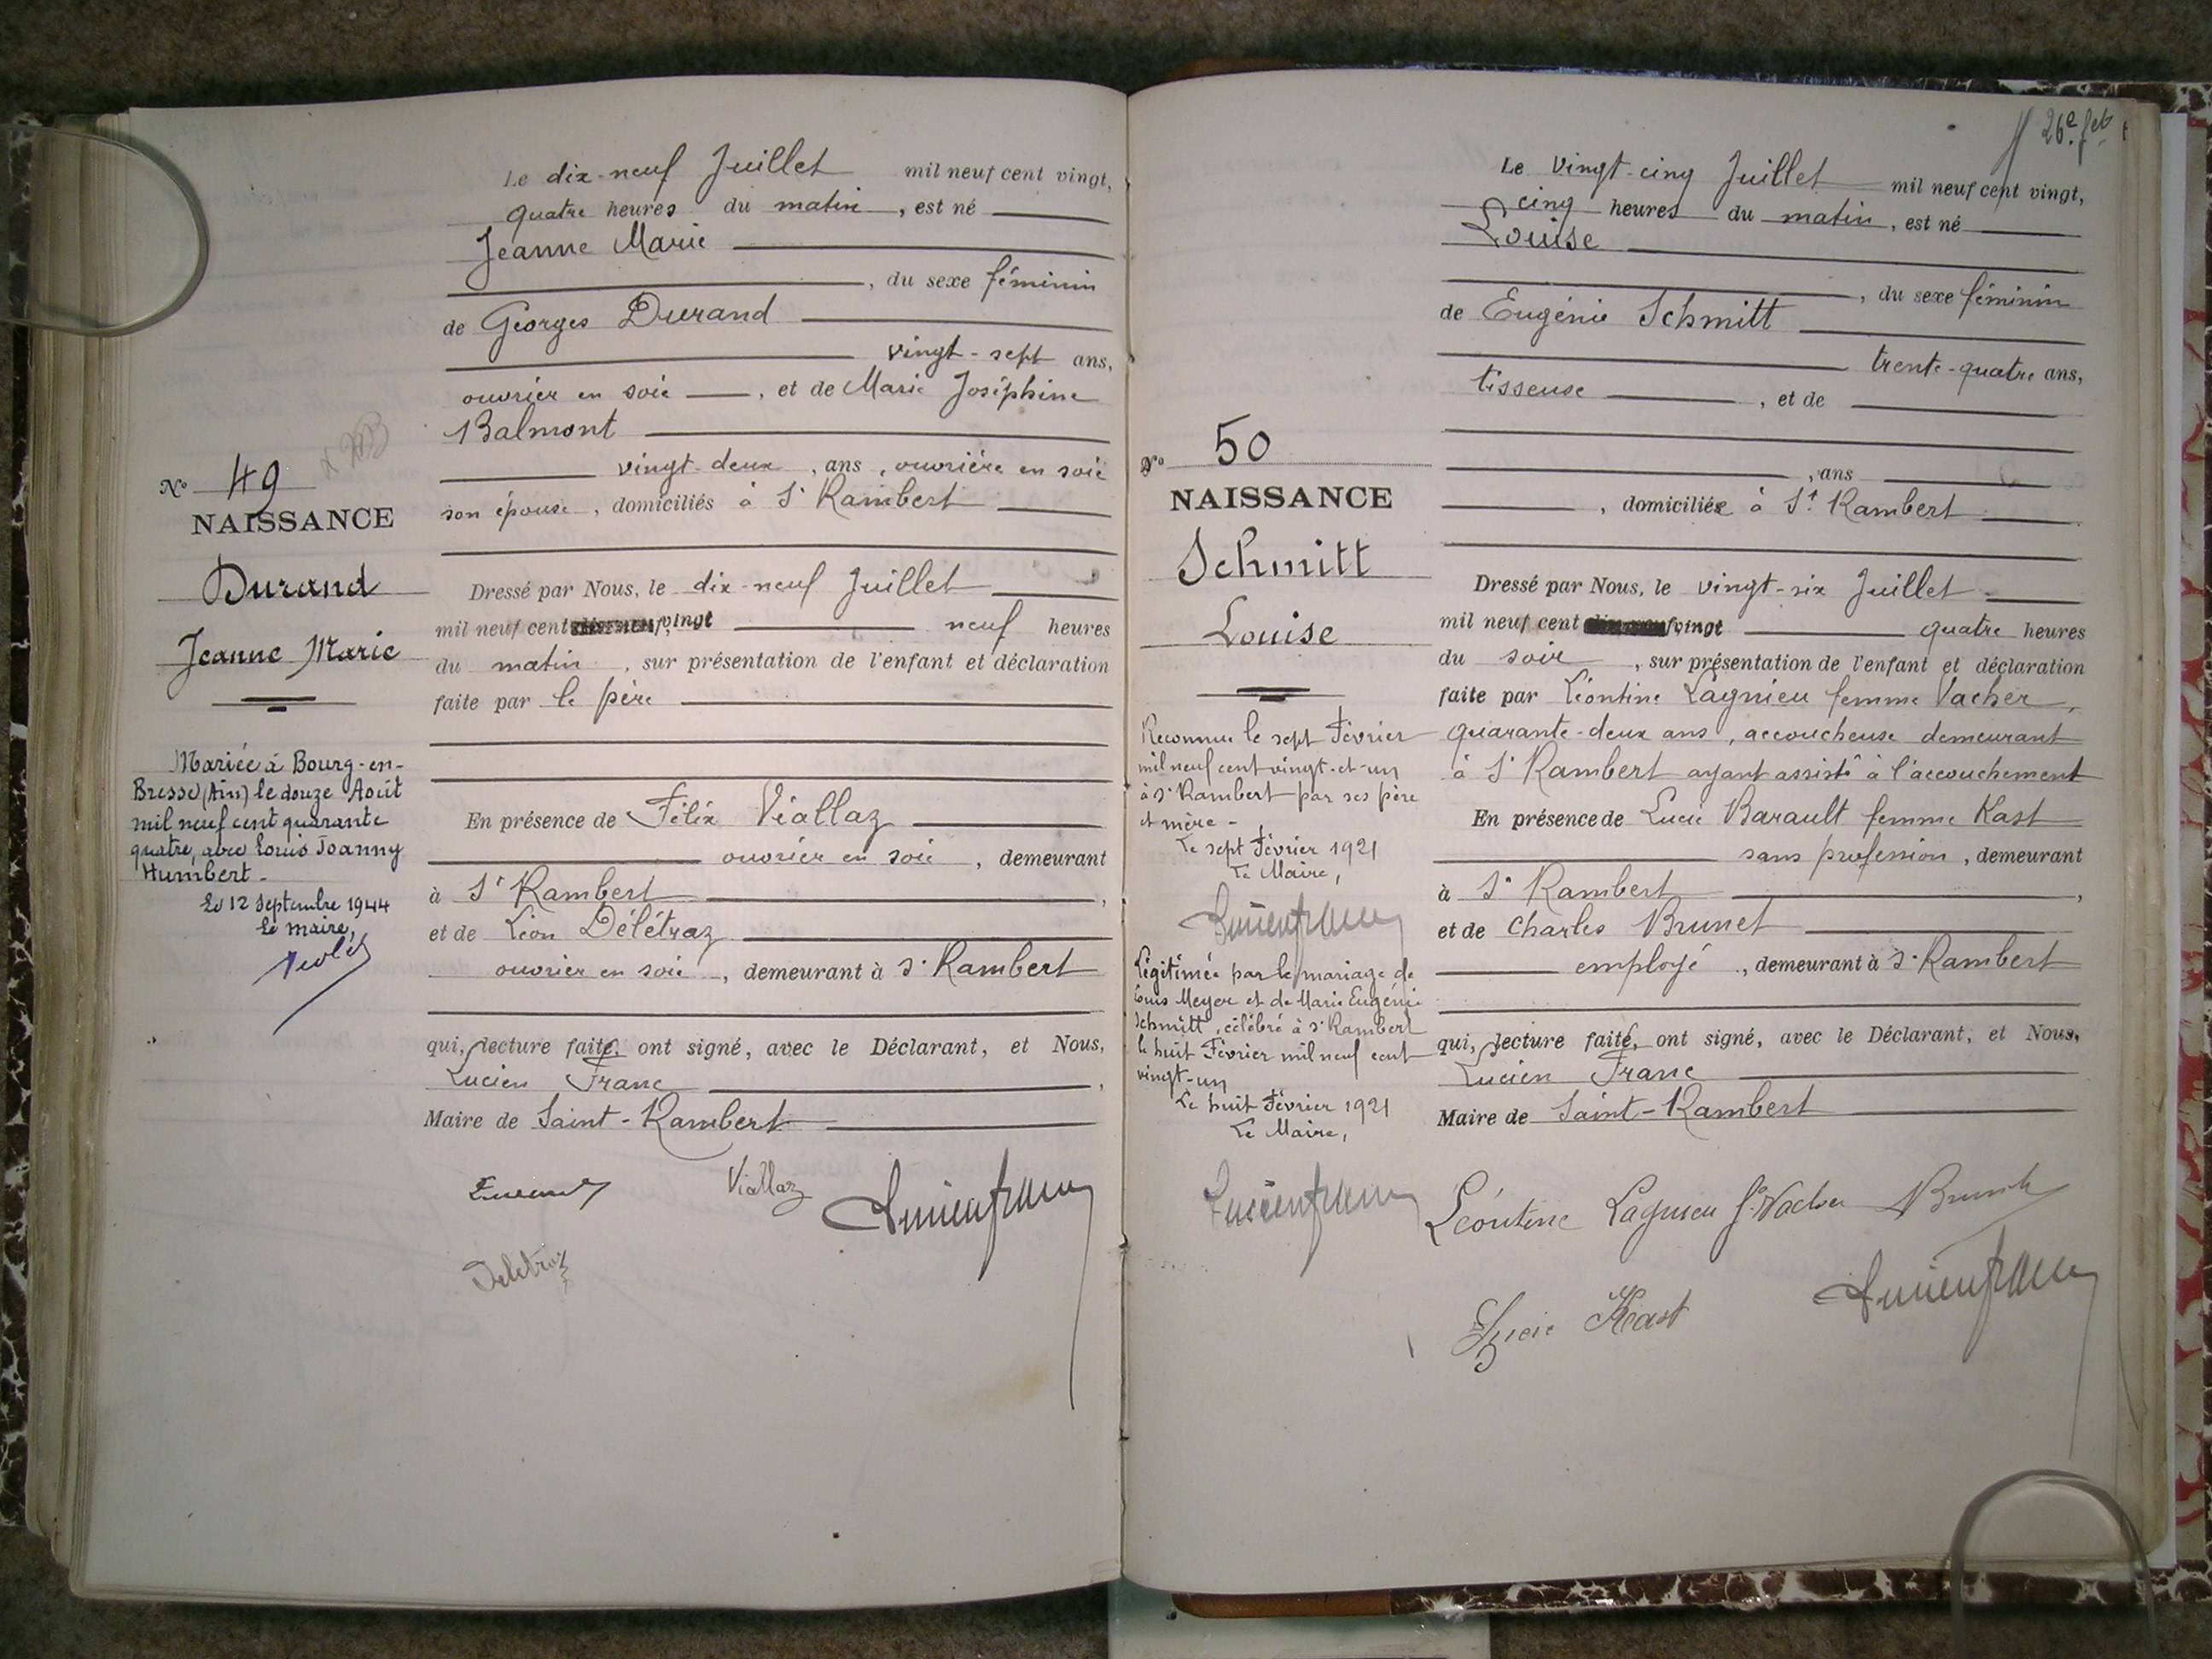 Le dix-neuf Juillet mil neuf cent vingt,
quatre heures du matin, est né
Jeanne Marie
, du sexe féminin
de Georges Durand
vingt-sept ans,
ouvrier en soie, et de Marie Joséphine
Balmont
vingt-deux, ans, ouvrière en soie
son épouse, domiciliés à St Rambert
No 49
NAISSANCE
Durand
Jeanne Marie
Dressé par Nous, le dix-neuf Juillet
mil neuf cent vingt neuf heures
du matin, sur présentation de l'enfant et déclaration
faite par le père
Mariée à Bourg-en-
Bresse (Ain) le douze Août
mil neuf cent quarante
quatre, avec Louis Joanny
Humbert.
Le 12 Septembre 1944
Le maire,
En présence de Félix Viallaz
ouvrier en soie, demeurant
à St Rambert,
et de Léon Délétraz
ouvrier en soie, demeurant à St Rambert
qui, lecture faite, ont signé, avec le Déclarant, et Nous,
Lucien Franc,
Maire de Saint-Rambert
Viallaz
Deletraz
26e fet
Le vingt-cinq Juillet mil neuf cent vingt,
cinq heures du matin, est né
Louise
, du sexe féminin
de Eugénie Schmitt
trente-quatre ans,
tisseuse, et de
, ans
, domiciliée à St. Rambert
No 50
NAISSANCE
Schmitt
Louise
Dressé par Nous, le vingt-six Juillet
mil neuf cent vingt quatre heures
du soir, sur présentation de l'enfant et déclaration
faite par Léontine Lagnieu femme Vacher,
quarante-deux ans, accoucheuse demeurant
à St Rambert ayant assisté à l'accouchement
En présence de Lucie Barault femme Kast
sans profession, demeurant
à St Rambert,
et de Charles Brunet
employé, demeurant à St Rambert
qui, lecture faite, ont signé, avec le Déclarant, et Nous,
Lucien Franc
Maire de Saint-Rambert
Reconnue le sept Février
mil neuf cent vingt-et-un
à St Rambert par ses père
et mère -
Le sept Février 1921
Le Maire,
Lucien franc
Légitimée par le mariage de
Louis Meyer et de Marie Eugénie
Schmitt, célébré à St Rambert
le huit Février mil neuf cent
vingt-un
Le huit Février 1921
Le Maire,
Lucien franc
Léontine Lagnieu f. Vacher Brunet
Lucie Kast Lucien franc